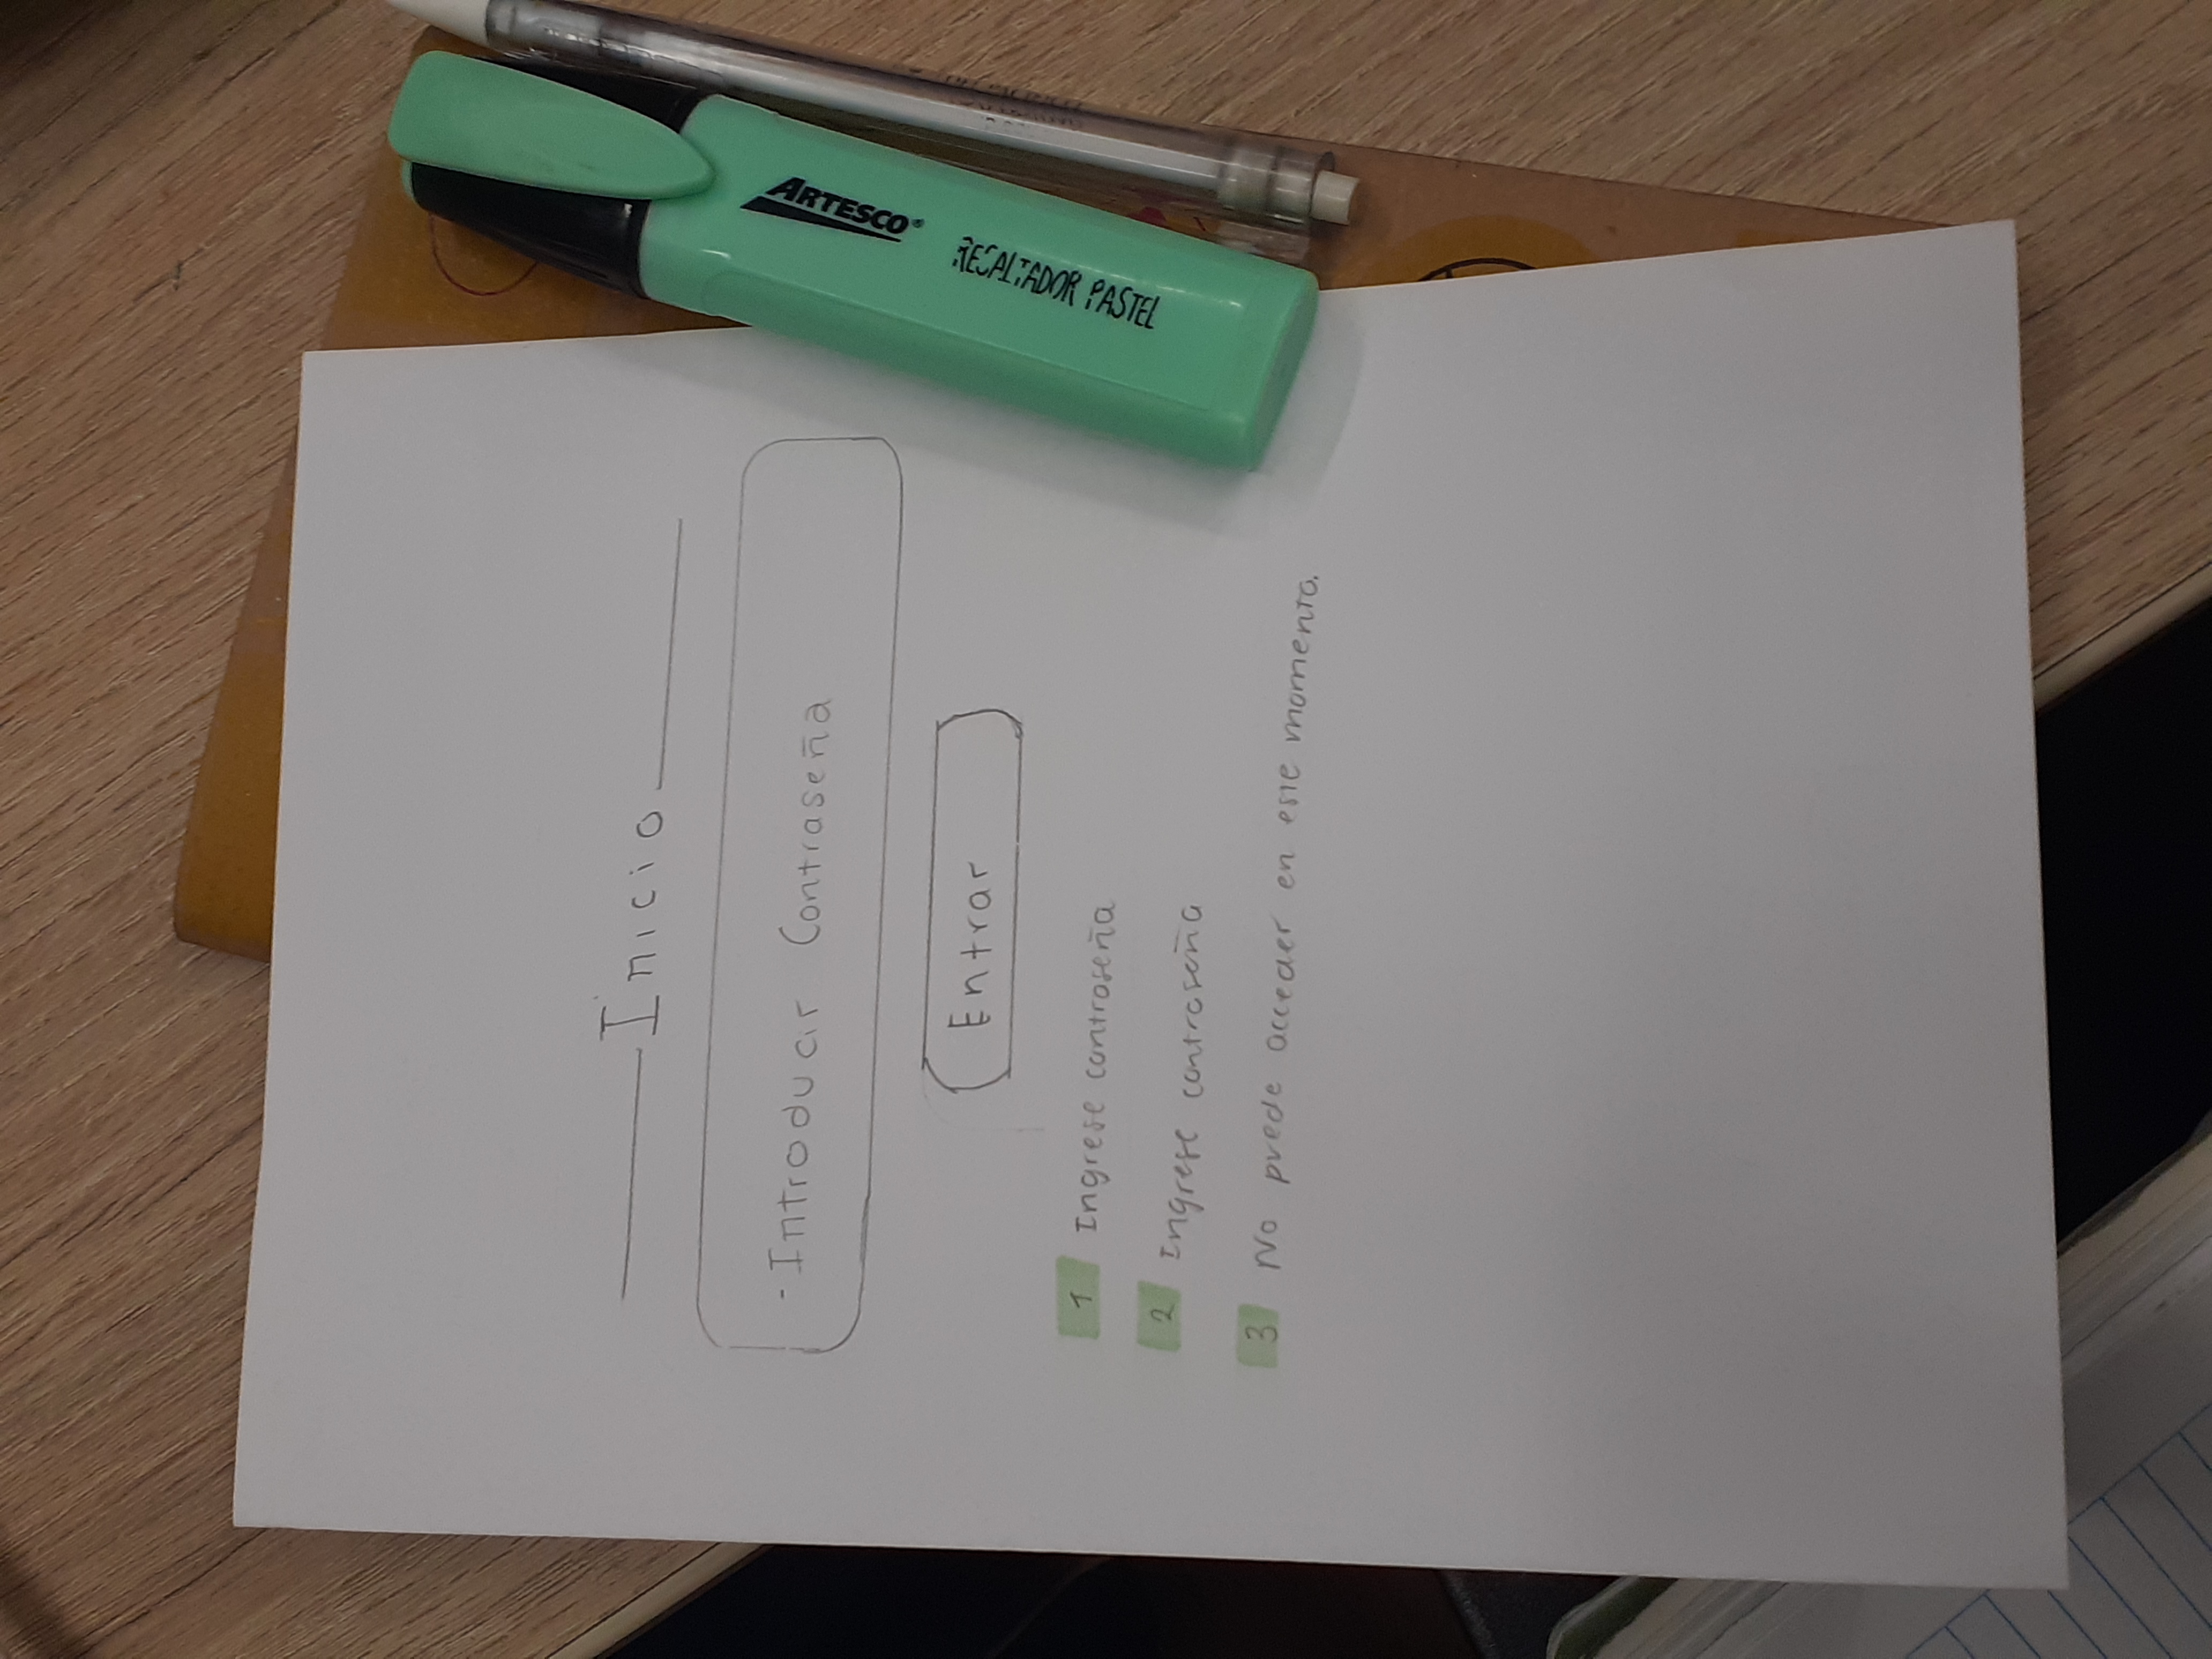 Inicio
- Introducir Contraseña
Entrar
1 Ingrese contraseña
2 Ingrese contraseña
3 No puede acceder en este momento.
ARTESCO®
RECALTADOR PASTEL